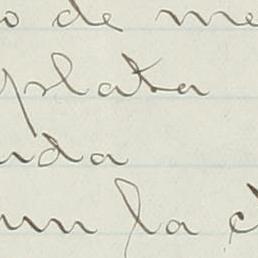 o de me
plata
uda
un la c